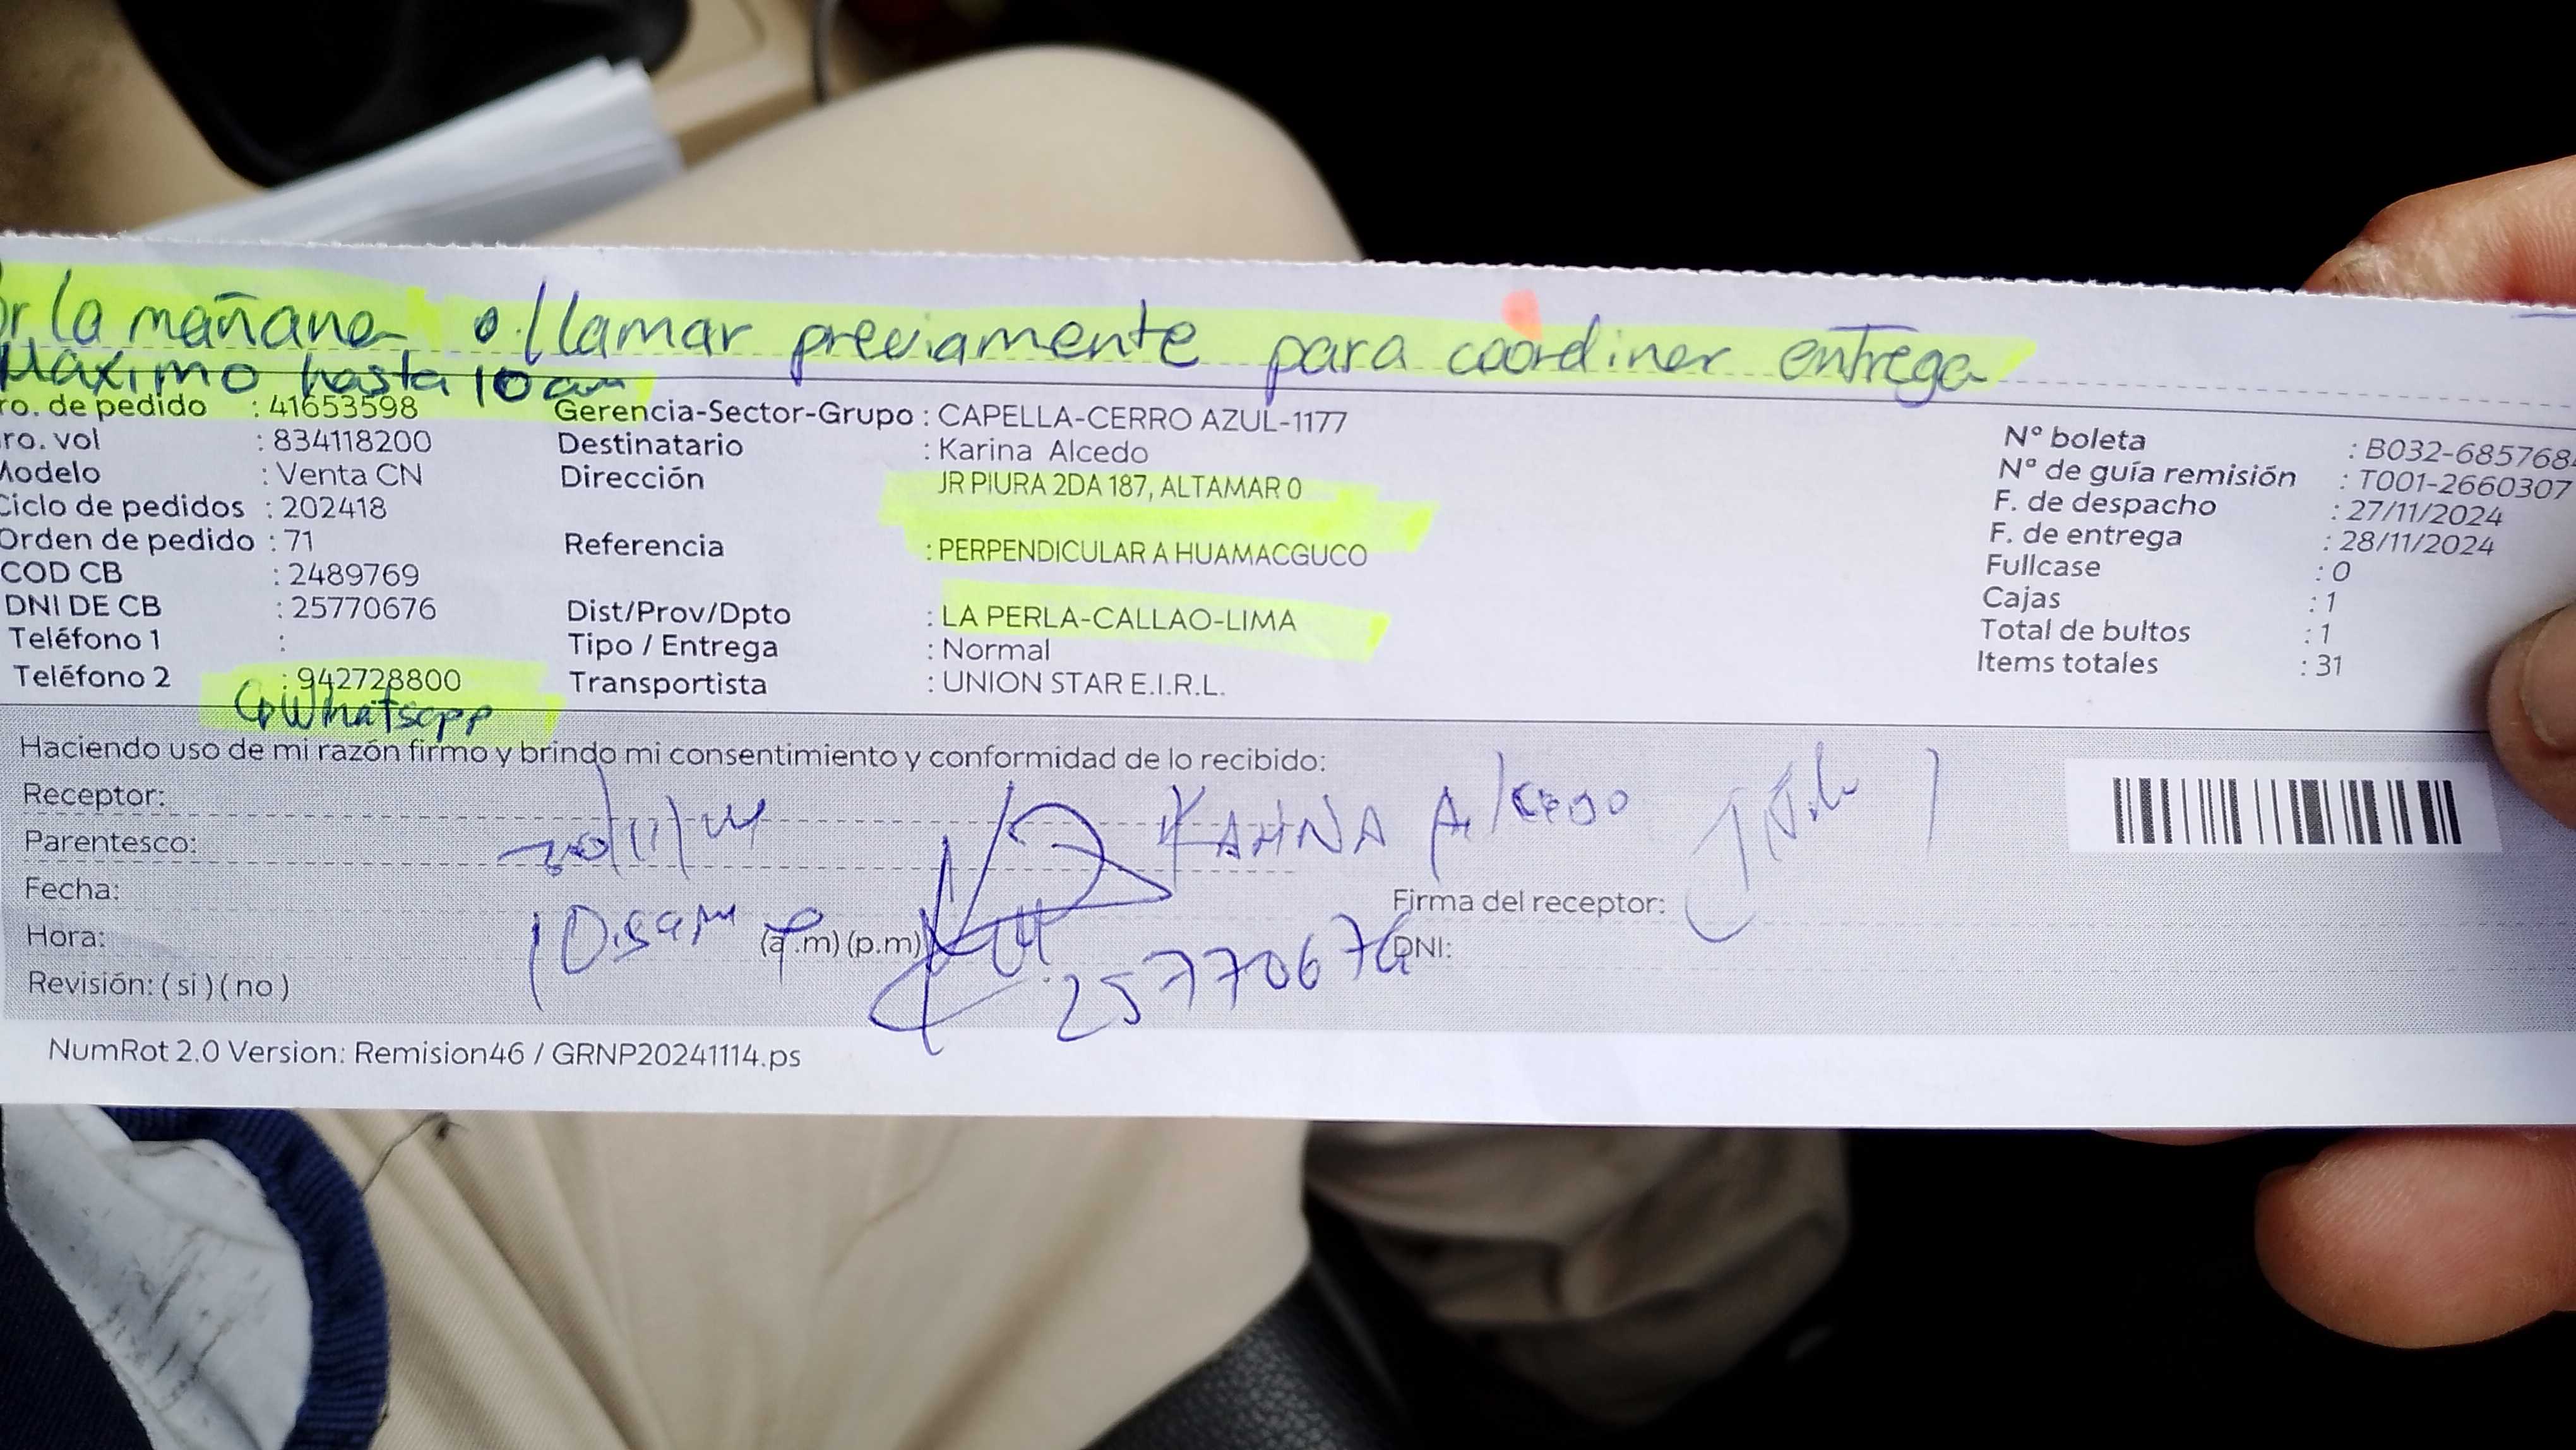 r la mañana o llamar previamente para coordinar entrega
Máximo hasta 10am
ro. de pedido : 41653598
ro. vol : 834118200
Modelo : Venta CN
Ciclo de pedidos : 202418
Orden de pedido : 71
COD CB : 2489769
DNI DE CB : 25770676
Teléfono 1 :
Teléfono 2 : 942728800
Whatsapp
Gerencia-Sector-Grupo : CAPELLA-CERRO AZUL-1177
Destinatario : Karina Alcedo
Dirección JR PIURA 2DA 187, ALTAMAR 0
Referencia : PERPENDICULAR A HUAMACGUCO
Dist/Prov/Dpto : LA PERLA-CALLAO-LIMA
Tipo / Entrega : Normal
Transportista : UNION STAR E.I.R.L.
N° boleta : B032-685768
N° de guía remisión : T001-2660307
F. de despacho : 27/11/2024
F. de entrega : 28/11/2024
Fullcase : 0
Cajas : 1
Total de bultos : 1
Items totales : 31
Haciendo uso de mi razón firmo y brindo mi consentimiento y conformidad de lo recibido:
Receptor:
KARINA Alcedo
Parentesco:
Fecha:
Firma del receptor:
Hora: (a.m) (p.m)
DNI:
25770676
Revisión: ( si ) ( no )
NumRot 2.0 Version: Remision46 / GRNP20241114.ps